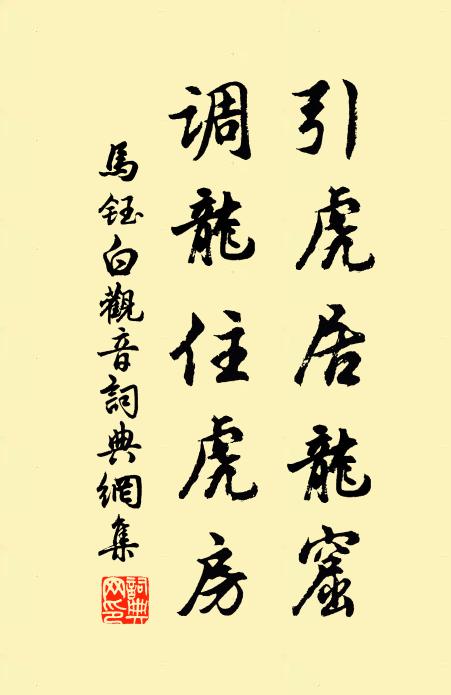 引虎居龍窟
調龍住虎房
馬鈺白觀音詞典網集
詞典網印